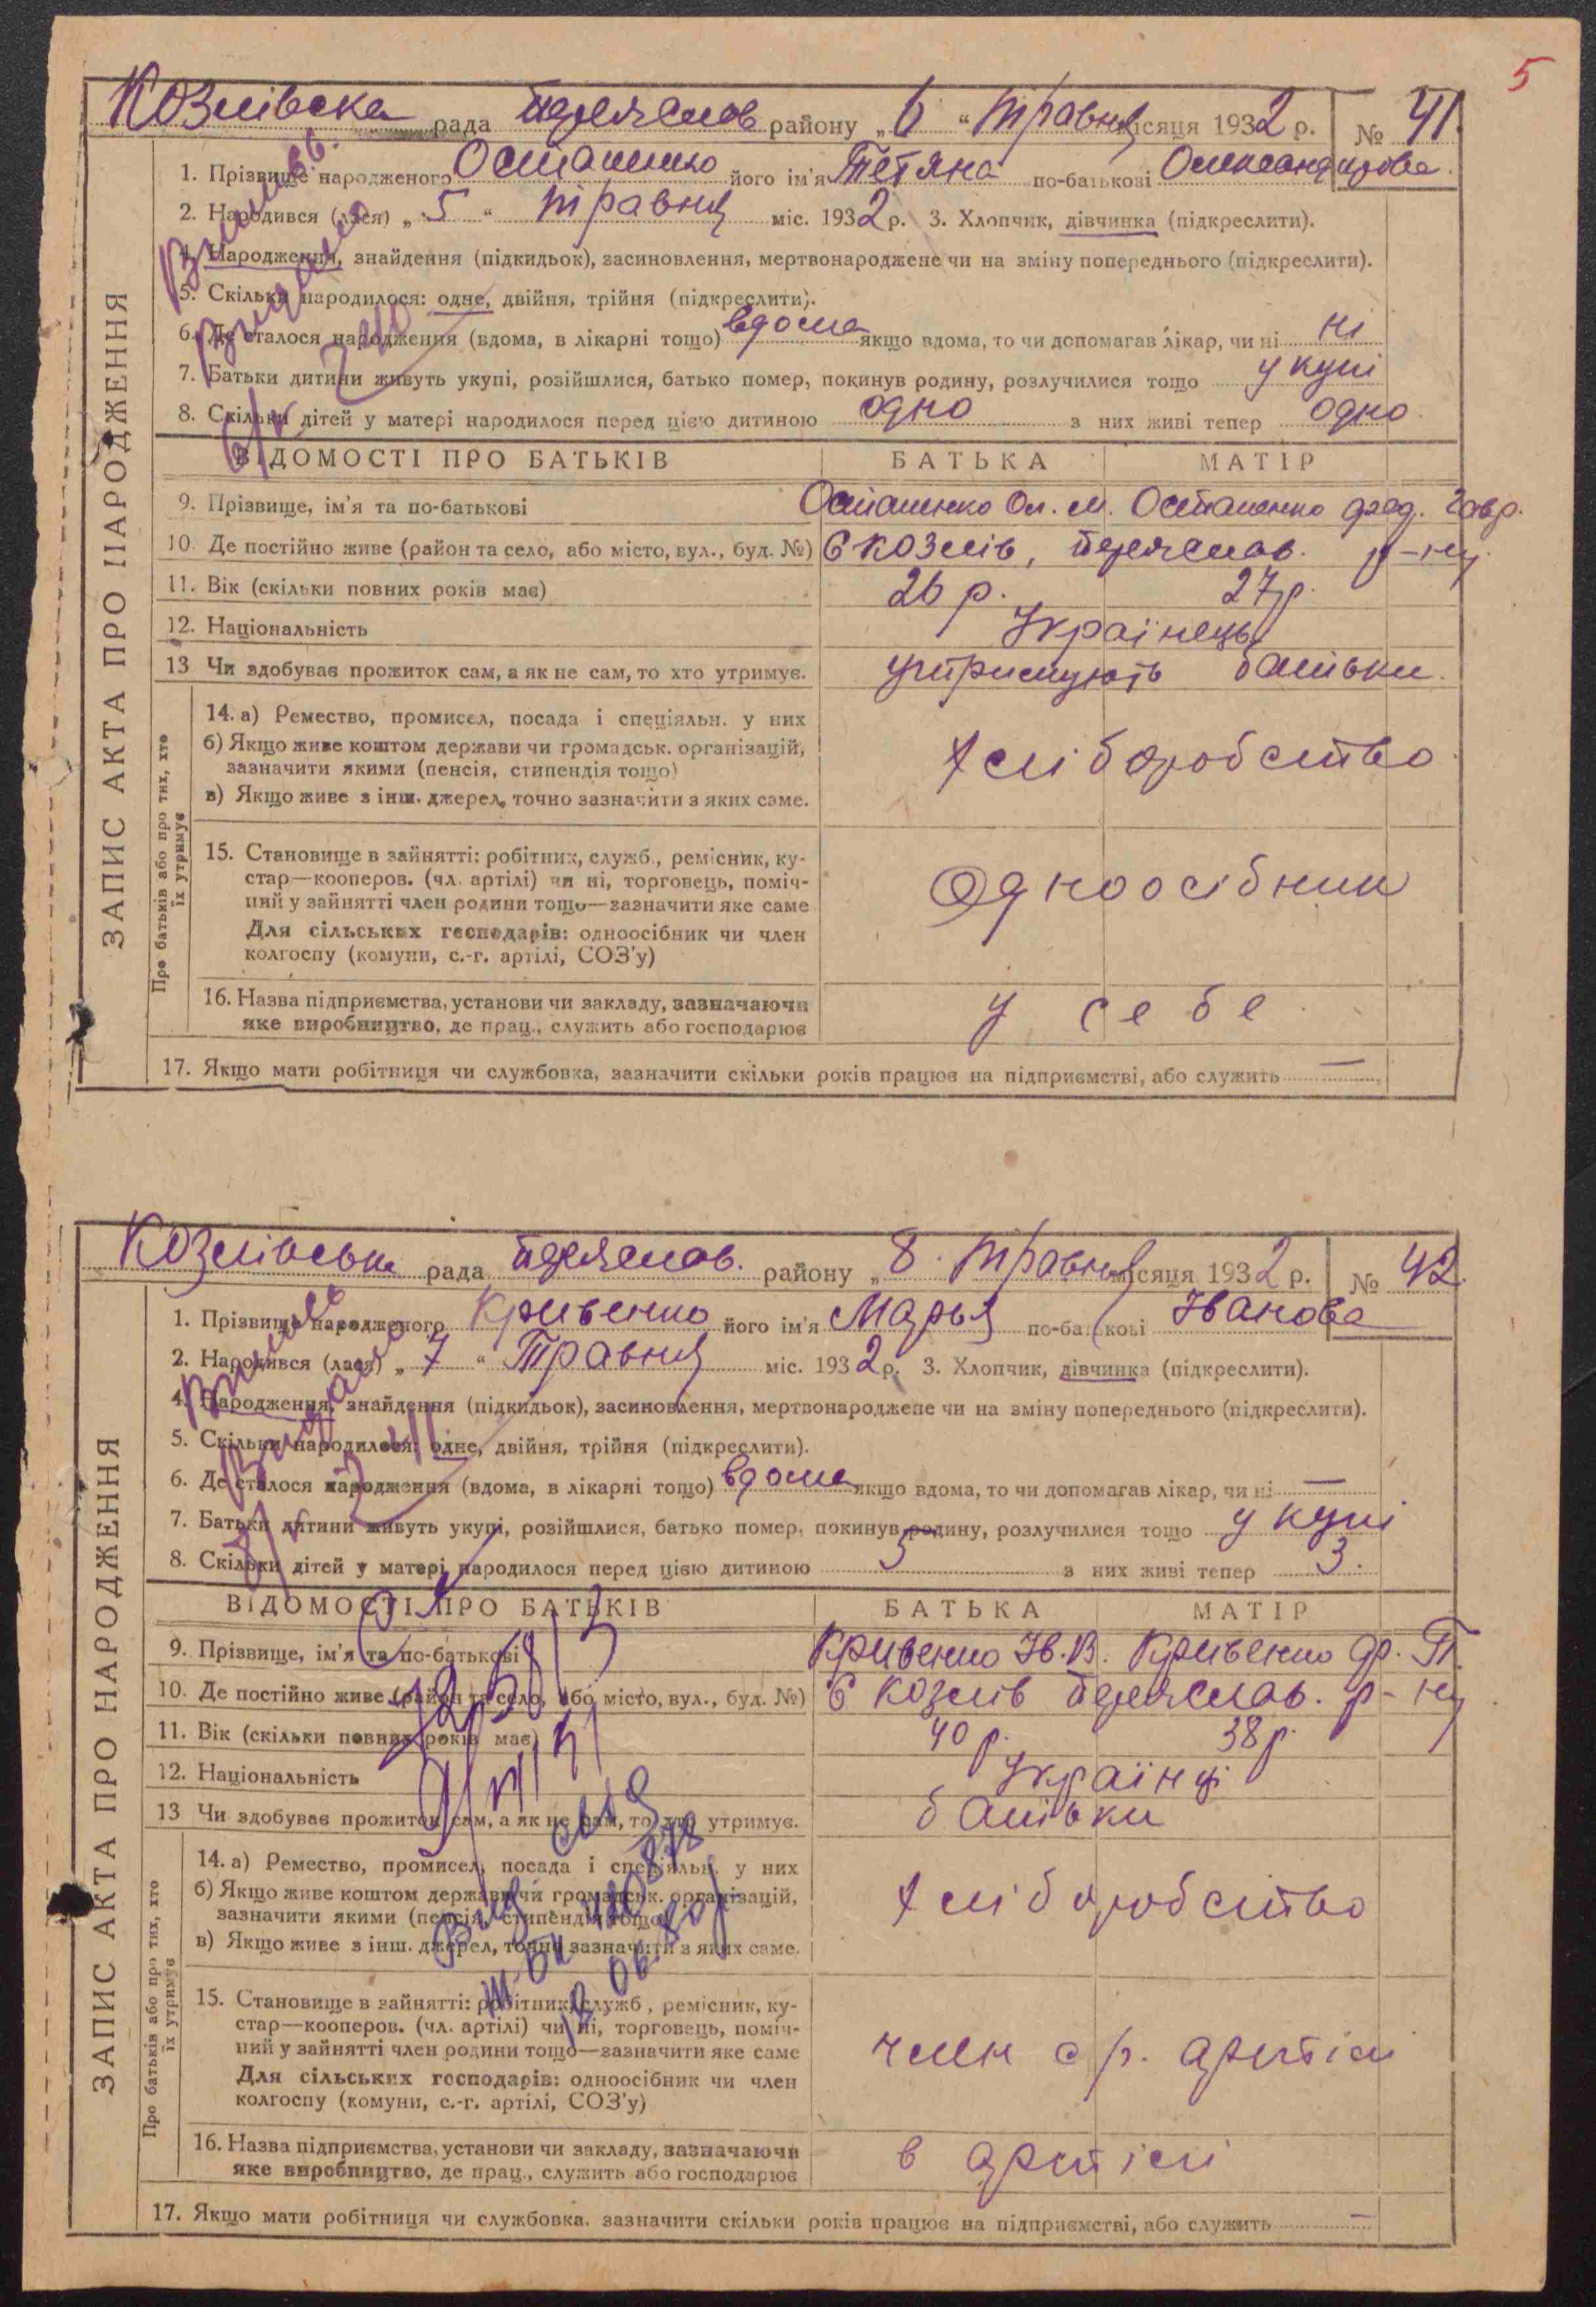 5
Козлівска рада Переяслов району „ 6 “ Травня місяця 1932 р. № 41.
1. Прізвище народженого Осташенко його ім'я Тетяна по-батькові Олександрова.
2. Народився (лася) „ 5 “ травня міс. 1932 р. 3. Хлопчик, дівчинка (підкреслити).
4. Народження, знайдення (підкидьок), засиновлення, мертвонароджене чи на зміну попереднього (підкреслити).
5. Скільки народилося: одне, двійня, трійня (підкреслити).
6. Де сталося народження (вдома, в лікарні тощо) вдома якщо вдома, то чи допомагав лікар, чи ні ні
7. Батьки дитини живуть укупі, розійшлися, батько помер, покинув родину, розлучилися тощо у купі
8. Скільки дітей у матері народилося перед цією дитиною одно з них живі тепер одно.
ВІДОМОСТІ ПРО БАТЬКІВ БАТЬКА МАТІР
9. Прізвище, ім'я та по-батькові Осташенко Ол. М. Осташенко Фед. Гавр.
10. Де постійно живе (район та село, або місто, вул., буд. №) С Козлів, Переяслав. р-ну.
11. Вік (скільки повних років має) 26 р. 27 р.
12. Національність Українець
13 Чи здобуває прожиток сам, а як не сам, то хто утримує. утримують батьки.
14. а) Ремество, промисел, посада і спеціяльн. у них
б) Якщо живе коштом держави чи громадськ. організацій,
зазначити якими (пенсія, стипендія тощо)
в) Якщо живе з інш. джерел, точно зазначити з яких саме.
хліборобство
15. Становище в зайнятті: робітник, служб., ремісник, ку-
стар—кооперов. (чл. артілі) чи ні, торговець, поміч-
ний у зайнятті член родини тощо—зазначити яке саме
Для сільських господарів: одноосібник чи член
колгоспу (комуни, с.-г. артілі, СОЗ'у)
Одноосібник
16. Назва підприємства, установи чи закладу, зазначаючи
яке виробництво, де прац., служить або господарює
у себе.
17. Якщо мати робітниця чи службовка, зазначити скільки років працює на підприємстві, або служить —
ЗАПИС АКТА ПРО НАРОДЖЕННЯ
Про батьків або про тих, хто
їх утримує
Козлівська рада Переяслав. району „ 8. Травня місяця 1932 р. № 42.
1. Прізвище народженого Кривенко його ім'я Марья по-батькові Іванова
2. Народився (лася) „ 7 “ Травня міс. 1932 р. 3. Хлопчик, дівчинка (підкреслити).
4. Народження, знайдення (підкидьок), засиновлення, мертвонароджене чи на зміну попереднього (підкреслити).
5. Скільки народилося: одне, двійня, трійня (підкреслити).
6. Де сталося народження (вдома, в лікарні тощо) вдома якщо вдома, то чи допомагав лікар, чи ні —
7. Батьки дитини живуть укупі, розійшлися, батько помер, покинув родину, розлучилися тощо у купі
8. Скільки дітей у матері народилося перед цією дитиною 5 з них живі тепер 3.
ВІДОМОСТІ ПРО БАТЬКІВ БАТЬКА МАТІР
9. Прізвище, ім'я та по-батькові Кривенко Ів. В. Кривенко Яр. П.
10. Де постійно живе (район та село, або місто, вул., буд. №) С Козлів Переяслав. р-ну
11. Вік (скільки повних років має) 40 р. 38 р.
12. Національність Українці
13 Чи здобуває прожиток сам, а як не сам, то хто утримує. батьки
14. а) Ремество, промисел, посада і спеціяльн. у них
б) Якщо живе коштом держави чи громадськ. організацій,
зазначити якими (пенсія, стипендія тощо)
в) Якщо живе з інш. джерел, точно зазначити з яких саме.
хліборобство
15. Становище в зайнятті: робітник, служб., ремісник, ку-
стар—кооперов. (чл. артілі) чи ні, торговець, поміч-
ний у зайнятті член родини тощо—зазначити яке саме
Для сільських господарів: одноосібник чи член
колгоспу (комуни, с.-г. артілі, СОЗ'у)
член с р. артілі
16. Назва підприємства, установи чи закладу, зазначаючи
яке виробництво, де прац., служить або господарює
в артілі
17. Якщо мати робітниця чи службовка. зазначити скільки років працює на підприємстві, або служить —
ЗАПИС АКТА ПРО НАРОДЖЕННЯ
Про батьків або про тих, хто
їх утримує